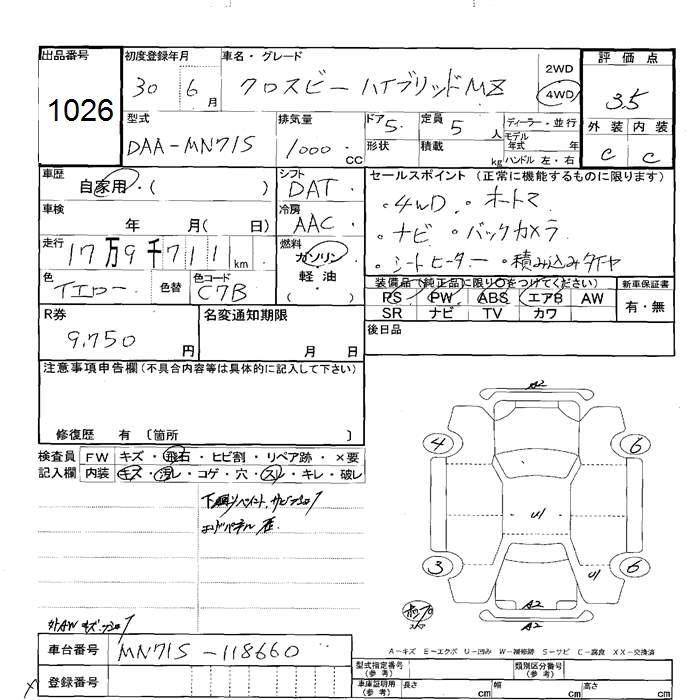 出品番号
1026
初度登録年月
30 6 月
車名・グレード
クロスビー ハイブリッドMZ
2WD
4WD
評価点
3.5
型式
DAA-MN71S
排気量
1000 CC
ドア 5
形状
定員 5 人
積載 kg
ディーラー・並行
モデル
年式 年
ハンドル 左・右
外装 内装
C C
車歴
自家用・( )
シフト
DAT
セールスポイント (正常に機能するものに限ります)
・4WD ・オートマ
・ナビ ・バックカメラ
・シートヒーター ・積み込みタイヤ
車検
年 月( 日)
冷房
AAC
走行
17万9千711 km
燃料
ガソリン
軽油
( )
色
イエロー
色替
色コード
C7B
装備品で(純正品に限り○をつけてください)
PS PW ABS エアB AW
SR ナビ TV カワ
新車保証書
有・無
R券
9,750 円
名変通知期限
月 日
後日品
注意事項申告欄(不具合内容等は具体的に記入して下さい)
修復歴 有 〔箇所 〕
検査員
記入欄
FW キズ・飛石・ヒビ割・リペア跡・×要
内装 キズ・汚レ・コゲ・穴・スレ・キレ・破レ
A2
4 6
U1
3 6
U1
A2
A2
A-キズ E-エクボ U-凹み W-補修跡 S-サビ C-腐食 XX-交換済
車台番号
MN71S-118660
登録番号
型式指定番号
(参考)
類別区分番号
(参考)
車庫証明用
(参考)
長さ cm 幅 cm 高さ cm